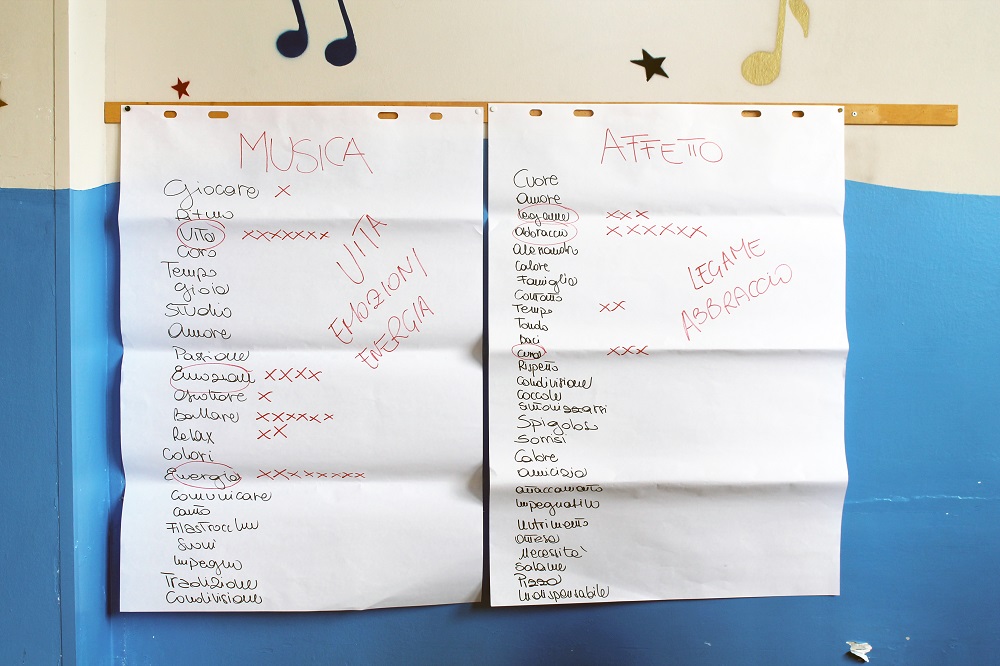 MUSICA
Giocare X
Ritmo
Vita XXXXXXX
Coro
Tempo
Gioia
Studio
Amore
Passione
Emozioni XXXX
Ascoltare X
Ballare XXXXXX
Relax XX
Colori
Energia XXXXXXXX
Comunicare
Canto
Filastrocche
Suoni
Impegno
Tradizione
Condivisione
VITA
EMOZIONI
ENERGIA
AFFETTO
Cuore
Amore
legame XXX
abbraccio XXXXXX
Calore
Famiglia
Contatto
Tempo XX
Baci
cura XXX
Rispetto
Condivisione
Coccole
Spigoloso
Sorrisi
Calore
amicizia
attaccamento
Impegnativo
Nutrimento
attesa
Necessità
Salame
Pizza
Indispensabile
LEGAME
ABBRACCIO